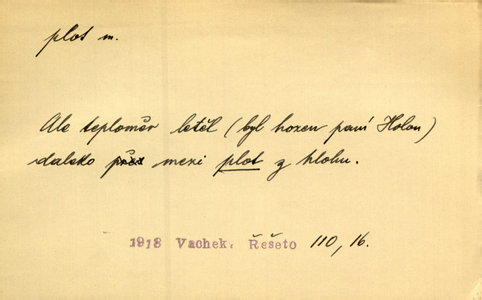 plot m.
Ale teploměr letěl (byl hozen paní Holou)
daleko před mezi plot z hlohu.
1918 Vachek, Řešeto 110, 16.